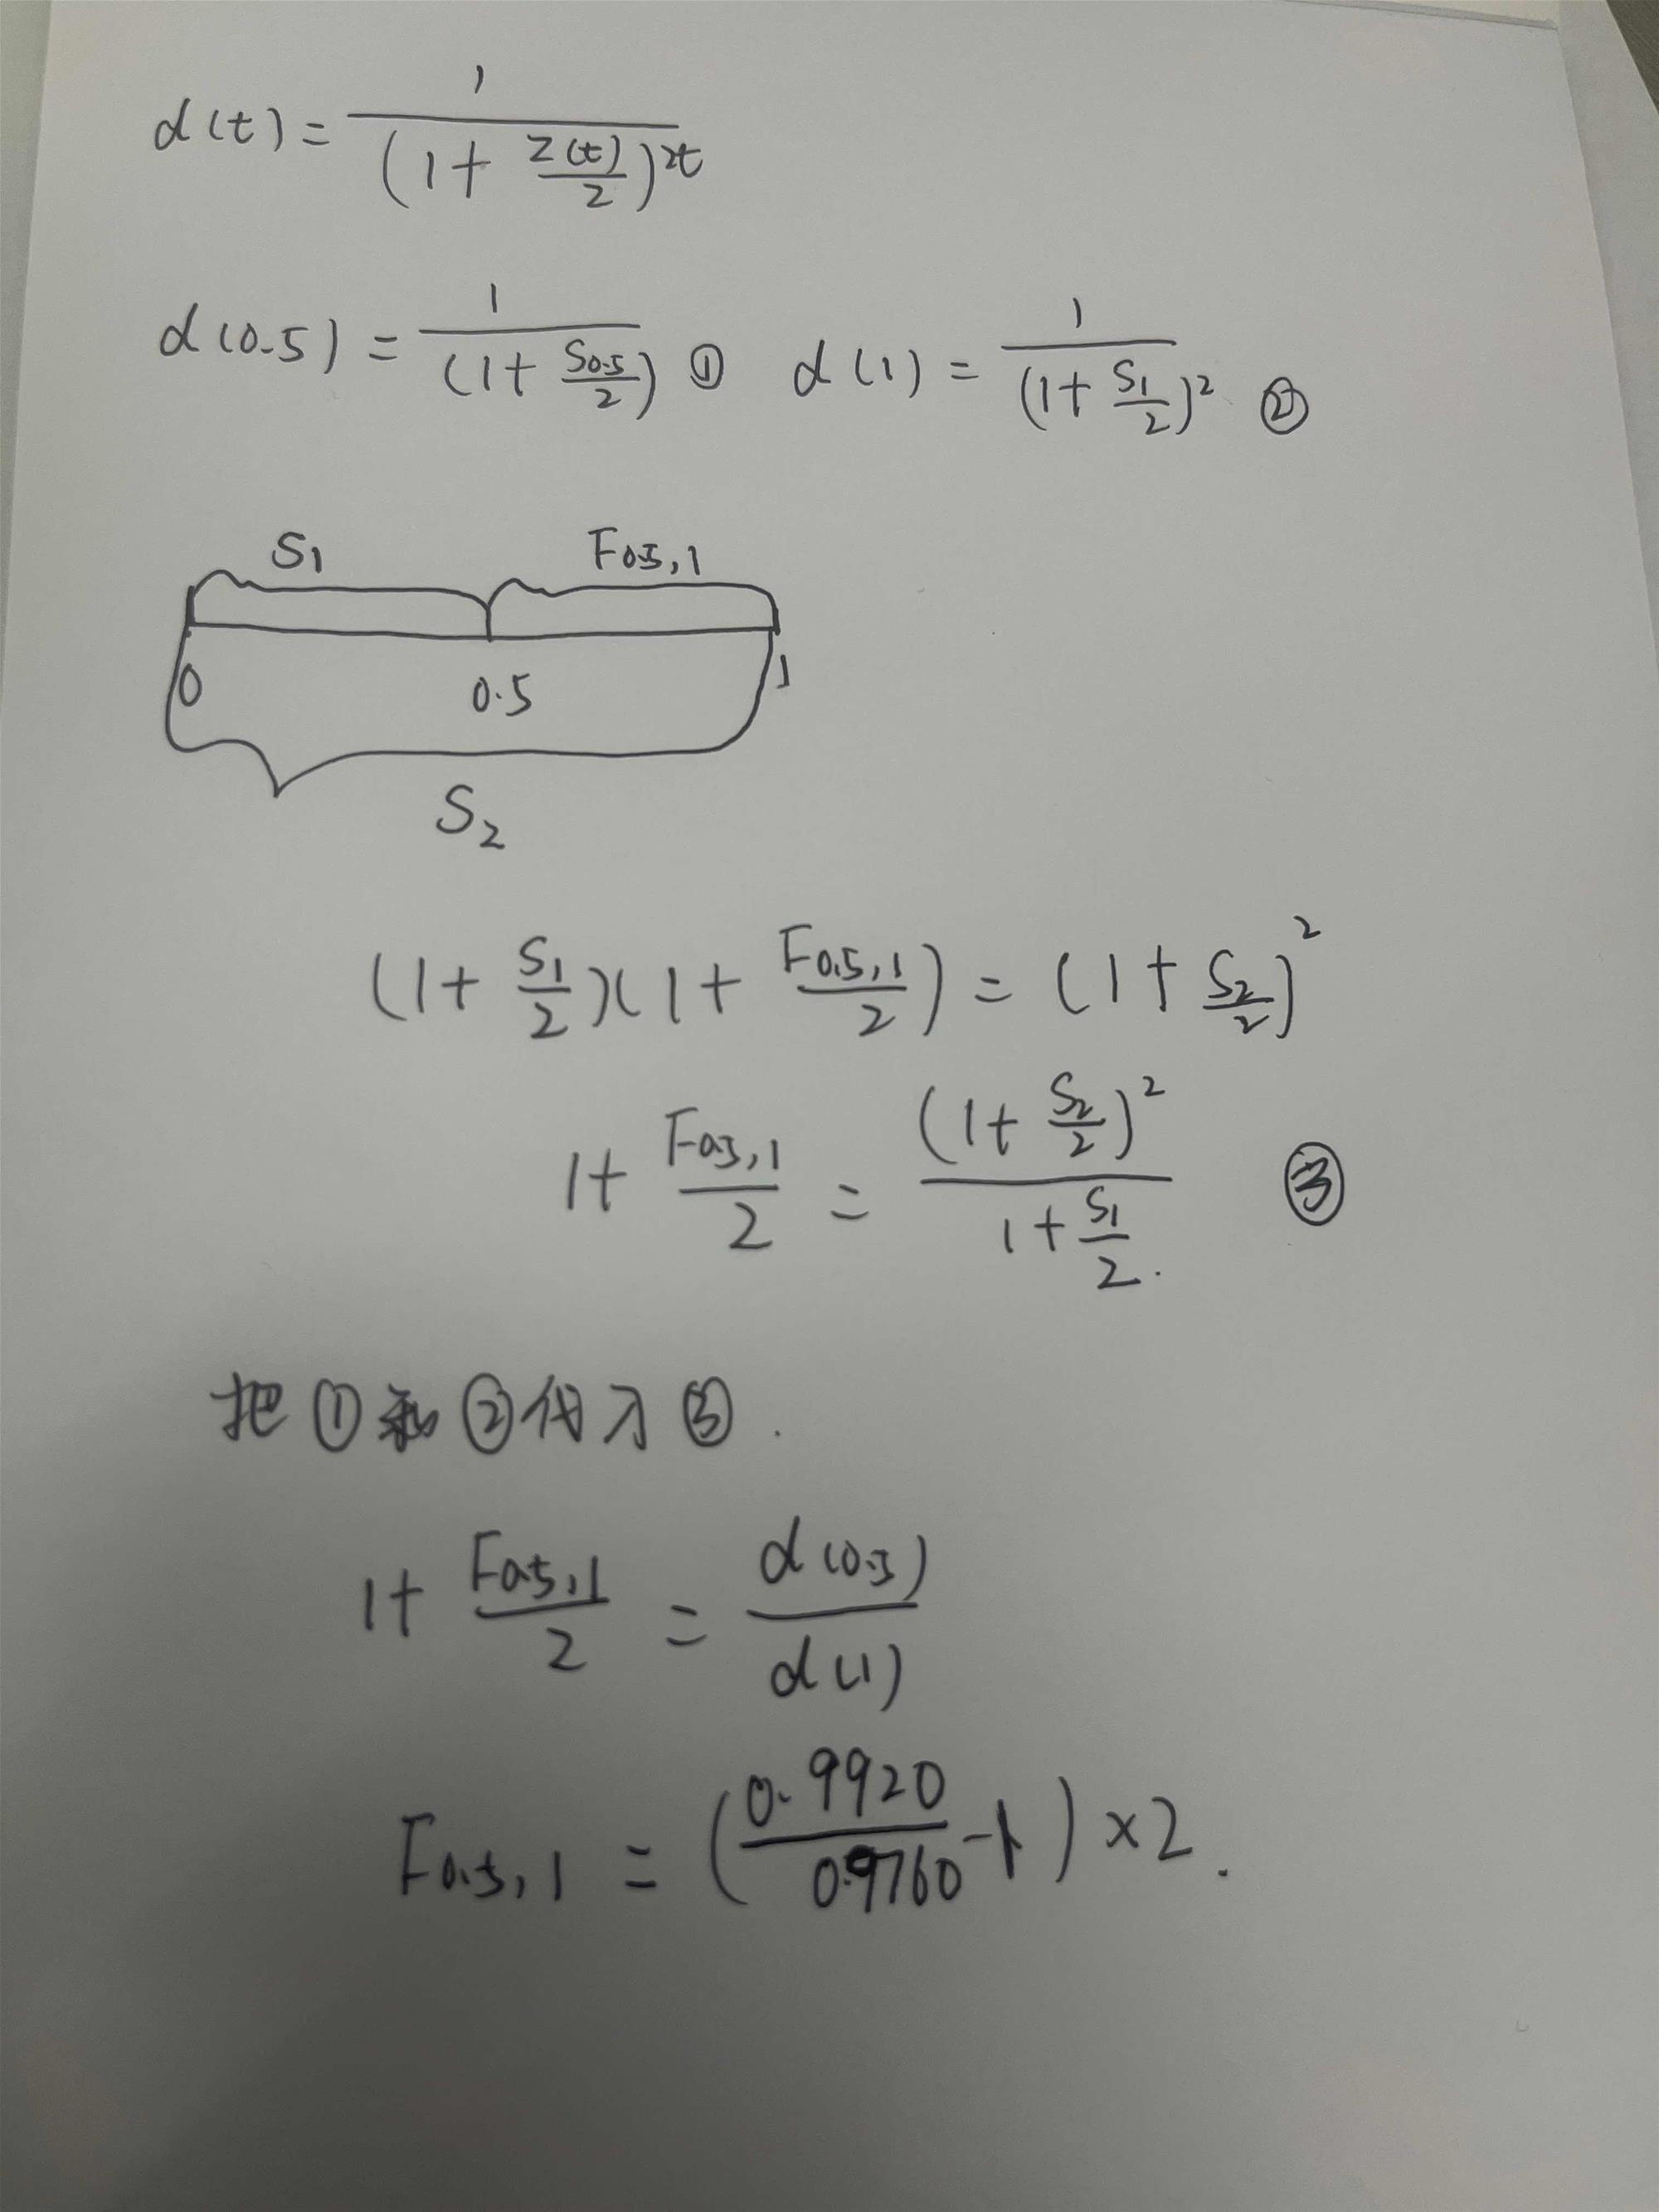 d(t) = 1 / (1 + z(t)/2)^2t
d(0.5) = 1 / (1 + S0.5/2) ① d(1) = 1 / (1 + S1/2)^2 ②
S1 F0.5,1
0 0.5 1
S2
(1 + S1/2)(1 + F0.5,1/2) = (1 + S2/2)^2
1 + F0.5,1/2 = (1 + S2/2)^2 / 1 + S1/2. ③
把①和②代入③.
1 + F0.5,1/2 = d(0.5)/d(1)
F0.5,1 = (0.9920/0.9760 - 1) × 2.